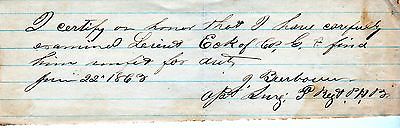 I certify on honor that I have carefully
examined Lieut Eck of Co G. & find
him unfit for duty
June 22d 1863
J Barbour
Asst Surg Regt